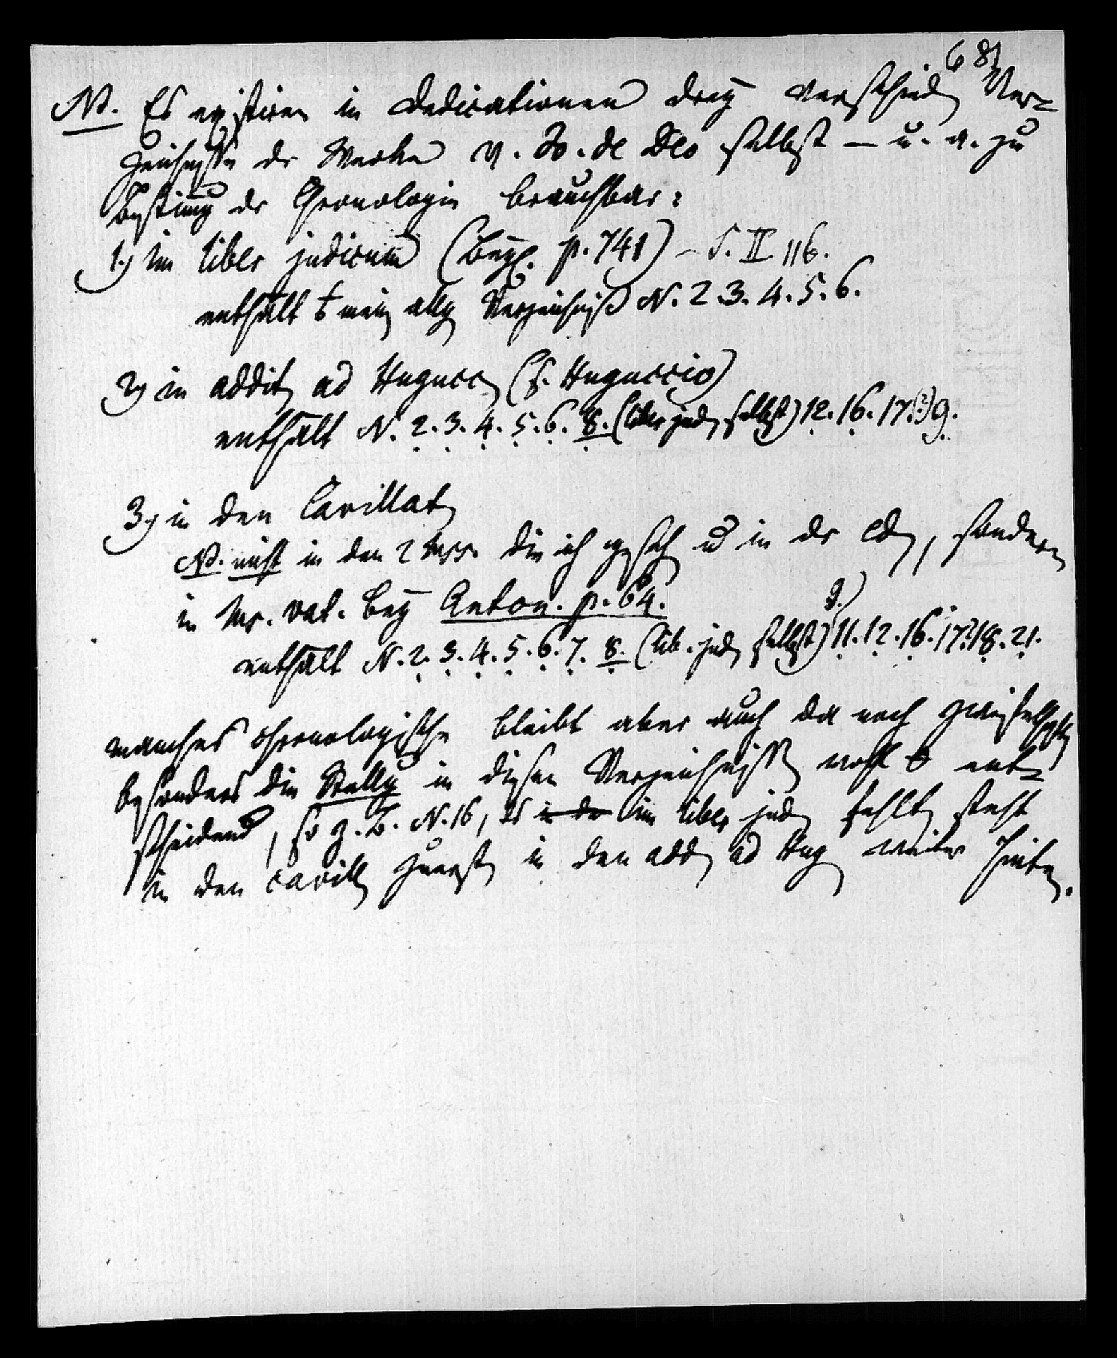 681
NB. Es existiren in Dedicationen drey verschied. Ver-
zeichnisse der Werke v. Jo. de Deo selbst — u. a. zu
Bestimg der Chronologie brauchbar:
1.) im liber judicum (Beyl. p. 741) – S. II 116.
enthält mein allg Verzeichniß N. 2. 3. 4. 5. 6.
2) in addit ad Hugucc (S. Huguccio)
enthält N. 2. 3. 4. 5. 6. 8. (liber jud selbst) 12. 16. 17.(?) 9.
3) in den Cavillat
NB. nicht in den 2 Mss. die ich gesehn u in der Ed, sondern
in Ms. vat. bey Anton. p. 64.
9.)
enthält N. 2. 3. 4. 5. 6. 7. 8. (lib. jud selbst) 11. 12. 16. 17? 18. 21.
manches chronologische bleibt aber auch da noch zweifelhaft
besonders die Stellg in diesen Verzeichniss wohl ent-
scheidend, so z. B. N. 16, im liber jud fehlt, steht
in den cavill zuerst, in den add ad Hug weiter hinten.